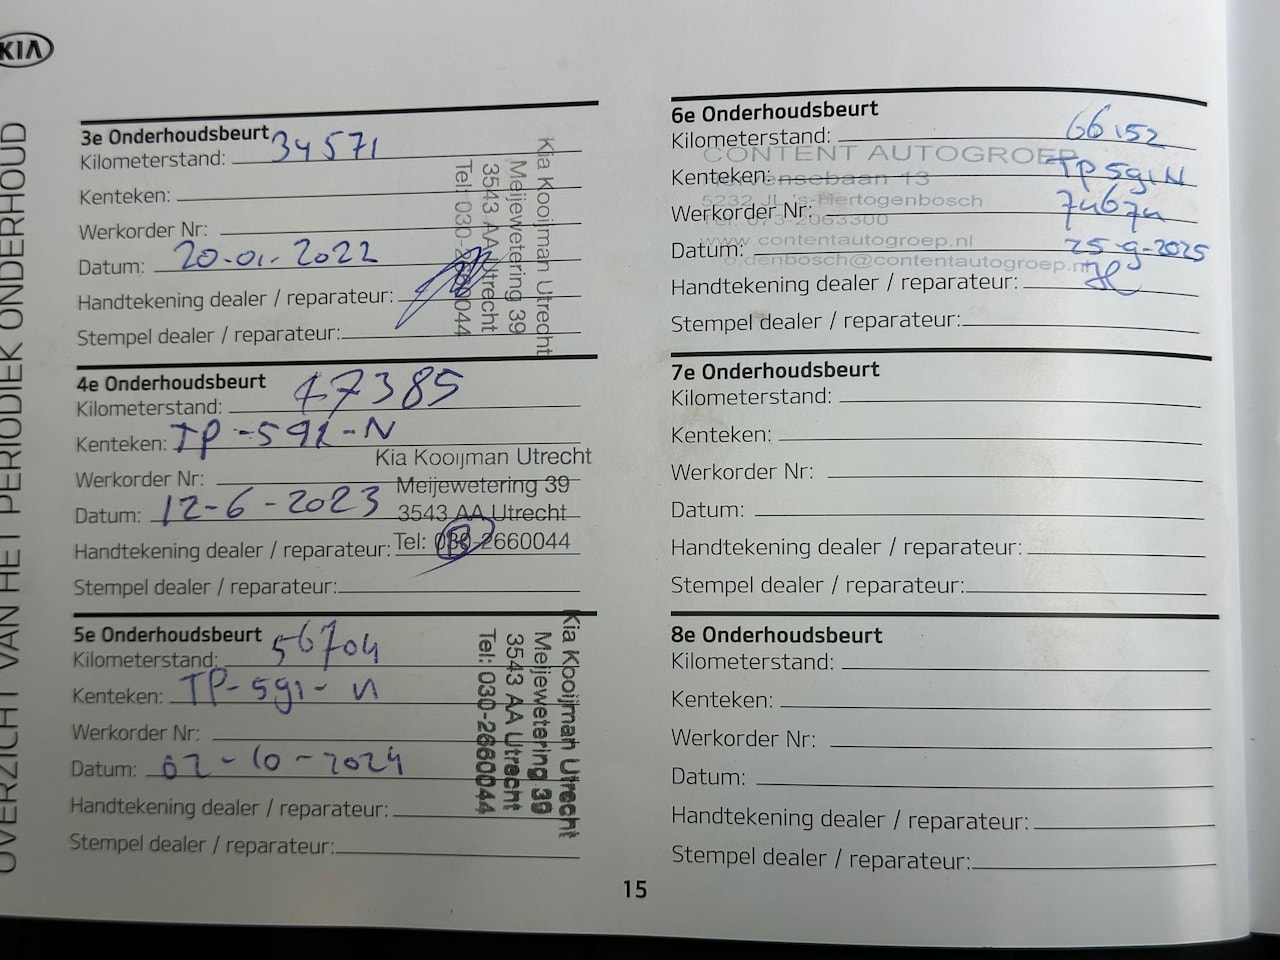 KIA
OVERZICHT VAN HET PERIODIEK ONDERHOUD
3e Onderhoudsbeurt
Kilometerstand: 34571
Kenteken:
Werkorder Nr:
Datum: 20-01-2022
Handtekening dealer / reparateur:
Stempel dealer / reparateur:
Kia Kooijman Utrecht
Meijewetering 39
3543 AA Utrecht
Tel: 030-2660044
4e Onderhoudsbeurt
Kilometerstand: 47385
Kenteken: TP-591-N
Werkorder Nr:
Datum: 12-6-2023
Handtekening dealer / reparateur:
Stempel dealer / reparateur:
Kia Kooijman Utrecht
Meijewetering 39
3543 AA Utrecht
Tel: 030-2660044
5e Onderhoudsbeurt
Kilometerstand: 56704
Kenteken: TP-591-N
Werkorder Nr:
Datum: 02-10-2024
Handtekening dealer / reparateur:
Stempel dealer / reparateur:
Kia Kooijman Utrecht
Meijewetering 39
3543 AA Utrecht
Tel: 030-2660044
6e Onderhoudsbeurt
Kilometerstand: 66152
Kenteken: TP591N
Werkorder Nr: 74674
Datum: 25-9-2025
Handtekening dealer / reparateur:
Stempel dealer / reparateur:
CONTENT AUTOGROEP
13
5232 JL 's-Hertogenbosch
Tel. 073-2063300
www.contentautogroep.nl
denbosch@contentautogroep.nl
7e Onderhoudsbeurt
Kilometerstand:
Kenteken:
Werkorder Nr:
Datum:
Handtekening dealer / reparateur:
Stempel dealer / reparateur:
8e Onderhoudsbeurt
Kilometerstand:
Kenteken:
Werkorder Nr:
Datum:
Handtekening dealer / reparateur:
Stempel dealer / reparateur:
15